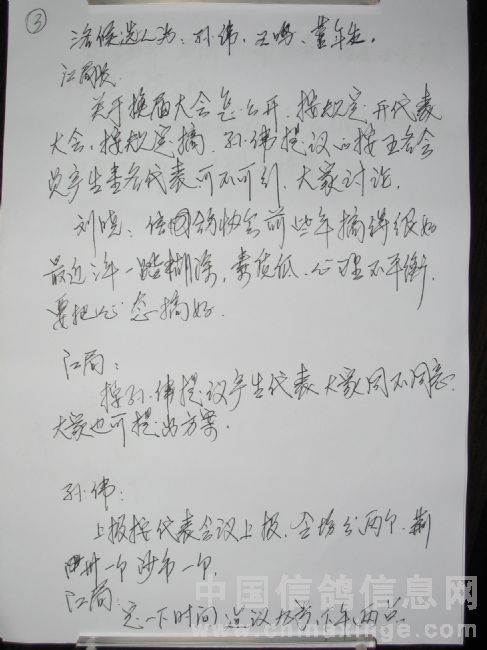 ③
候选人为：孙伟、王鸣、董年生。
江局长
关于换届大会怎么开，按规定开代表
大会，按规定搞。孙伟提议按五名会
员产生壹名代表，可不可行，大家讨论。
刘晓：信鸽协会前些年搞得很好
最近一塌糊涂，素质低，心理不平衡，
要把心态搞好。
江局：
按孙伟提议产生代表大家同不同意
大家也可提出方案。
孙伟：
上报按代表会议上报，会场分两个，荆
州一个沙市一个，
江局：
定一下时间，建议九号下午两点
中国信鸽信息网
www.chinaxinge.com